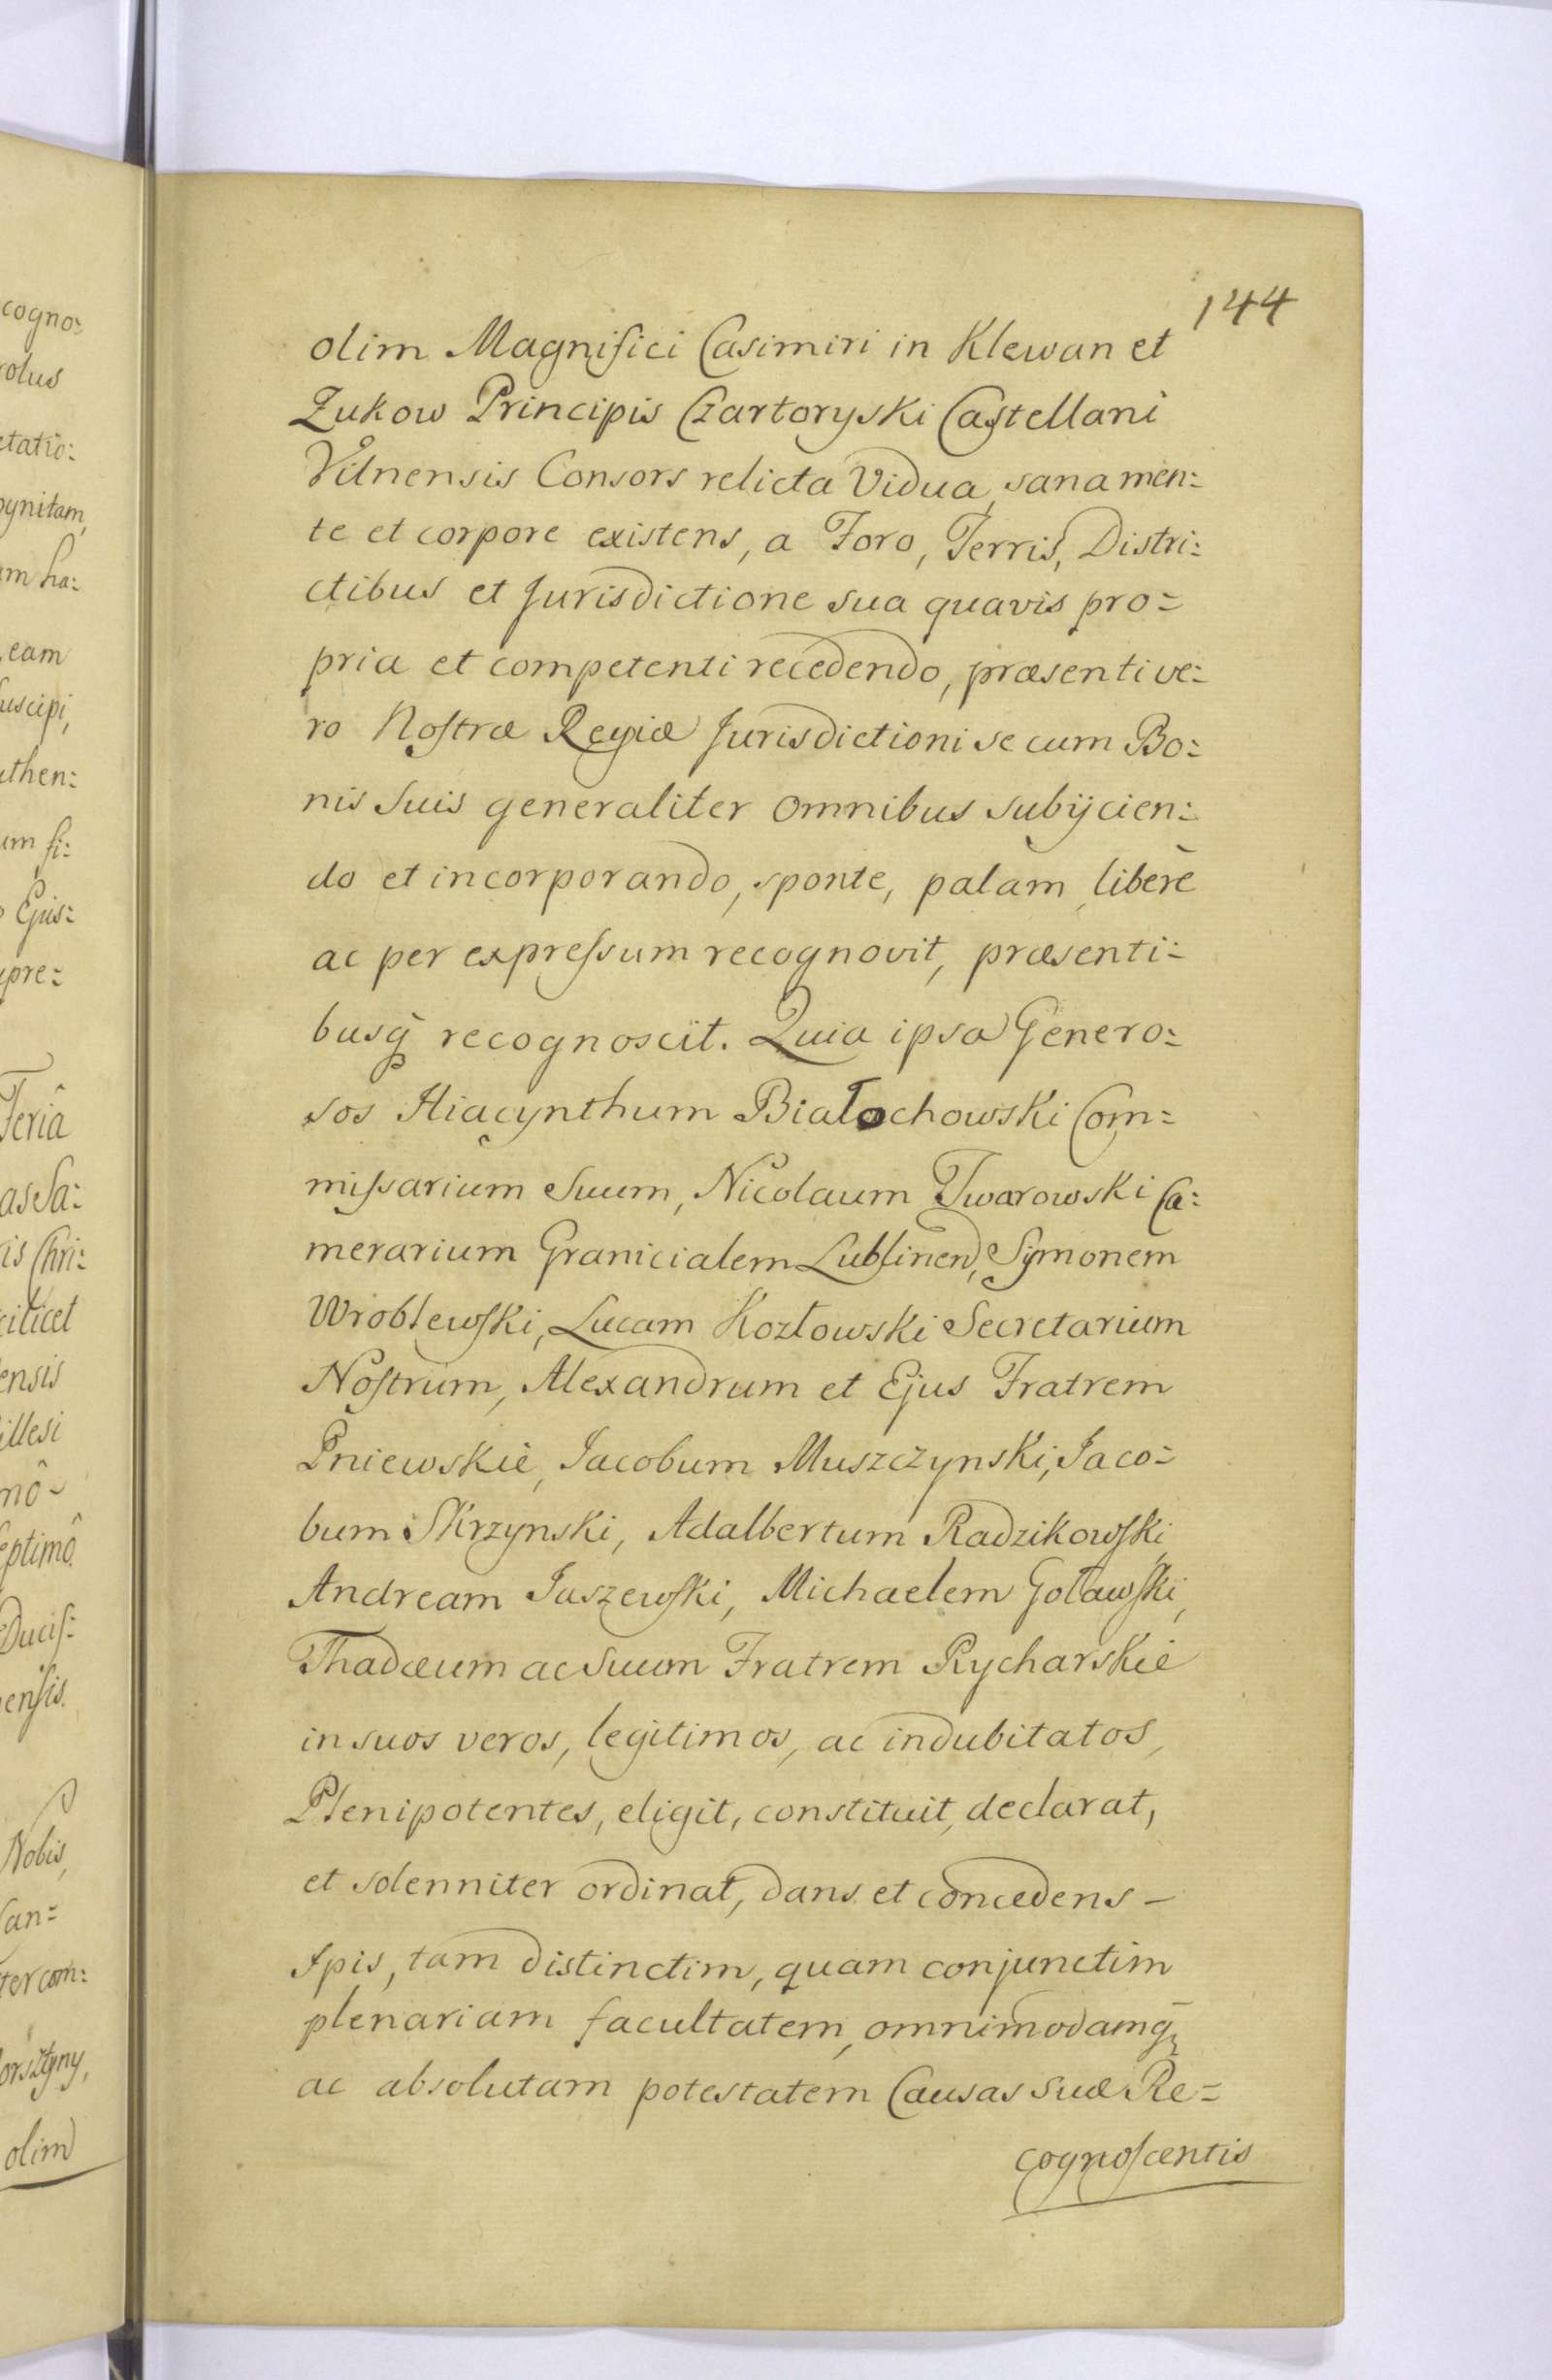 cogno:
rolus
etatio:
ognitam,
um ha:
eam
suscipi,
uthen:
um fi:
Ejus:
pre:
Feriâ
as Sa:
is Chri:
cilicet
ensis
illesi
mô
septimô
Ducis:
ensis.
Nobis,
San=
ter com:
olim
144
olim Magnifici Casimiri in Klewan et
Zukow Principis Czartoryski Castellani
Vilnensis Consors relicta Vidua, sana men:
te et corpore existens, a Foro, Terris, Distri:
ctibus et Jurisdictione sua quavis pro=
pria et competenti recedendo, præsenti ve:
ro Nostræ Regiæ Jurisdictioni se cum Bo:
nis suis generaliter omnibus subijcien:
do et incorporando, sponte, palam, liberè
ac per expressum recognovit, præsenti=
busq̃ recognoscit. Quia ipsa Genero:
sos Hiacynthum Białochowski Com=
missarium suum, Nicolaum Twarowski Ca:
merarium Granicialem Lublinen, Symonem
Wroblewski, Lucam Kozłowski Secretarium
Nostrum, Alexandrum et Ejus Fratrem
Pniewskie, Jacobum Muszczynski, Jaco=
bum Skrzynski, Adalbertum Radzikowski,
Andream Jaszewski, Michaelem Goławski,
Thadæum ac suum Fratrem Rycharskie
in suos veros, legitimos, ac indubitatos,
Plenipotentes, eligit, constituit, declarat,
et solenniter ordinat, dans et concedens –
Ipis, tam distinctim, quam conjunctim
plenariam facultatem, omnimodamq̃
ac absolutam potestatem Causas suæ Re=
cognoscentis